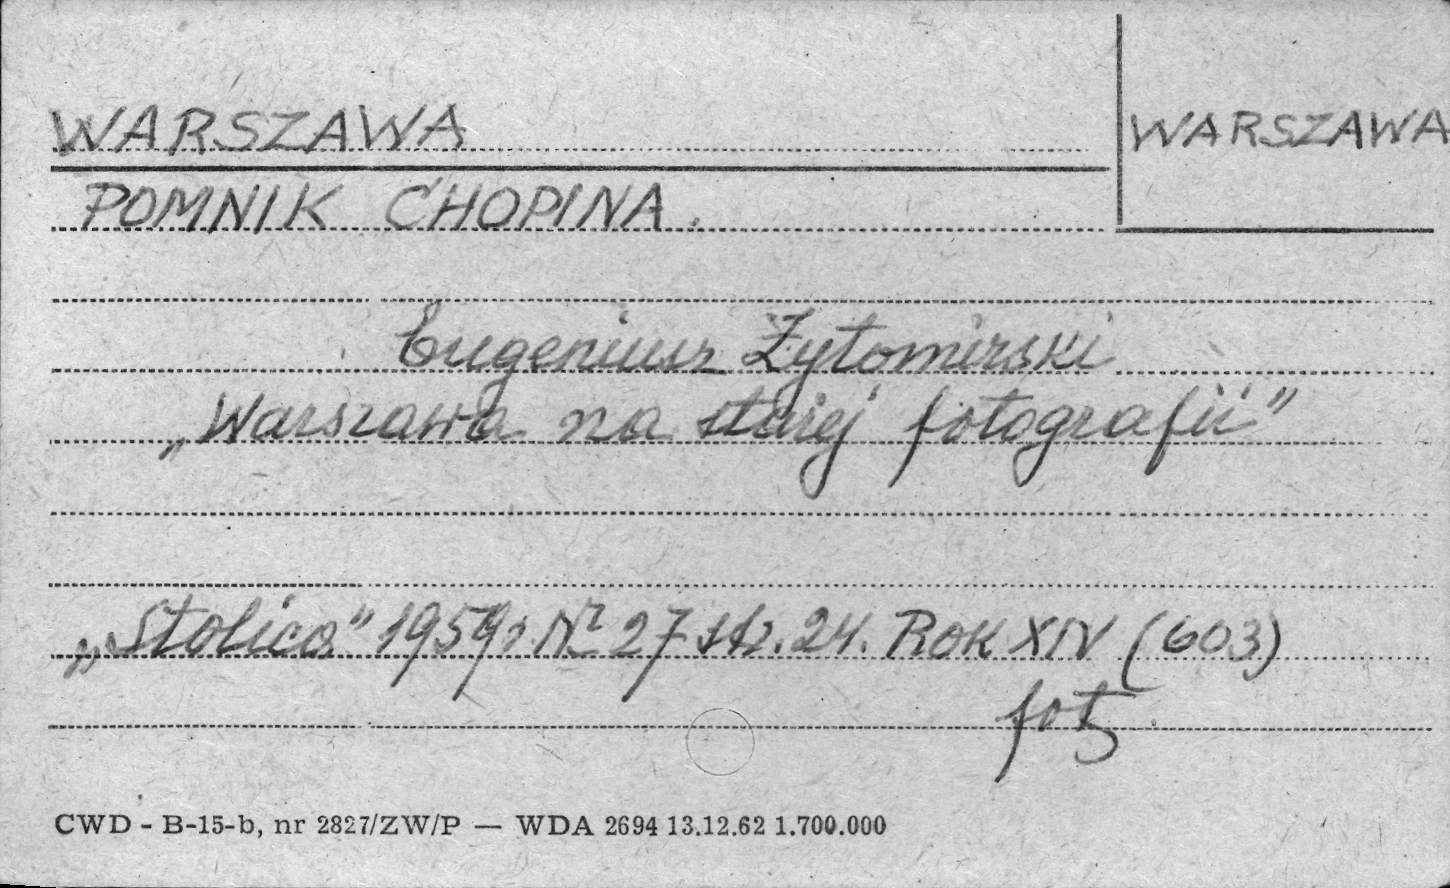 WARSZAWA
WARSZAWA
POMNIK CHOPINA.
Eugeniusz Żytomirski
„Warszawa na starej fotografii"
„Stolica" 1959r. Nr 27 str. 24. ROK XIV (603)
fot.
CWD - B-15-b, nr 2827/ZW/P — WDA 2694 13.12.62 1.700.000